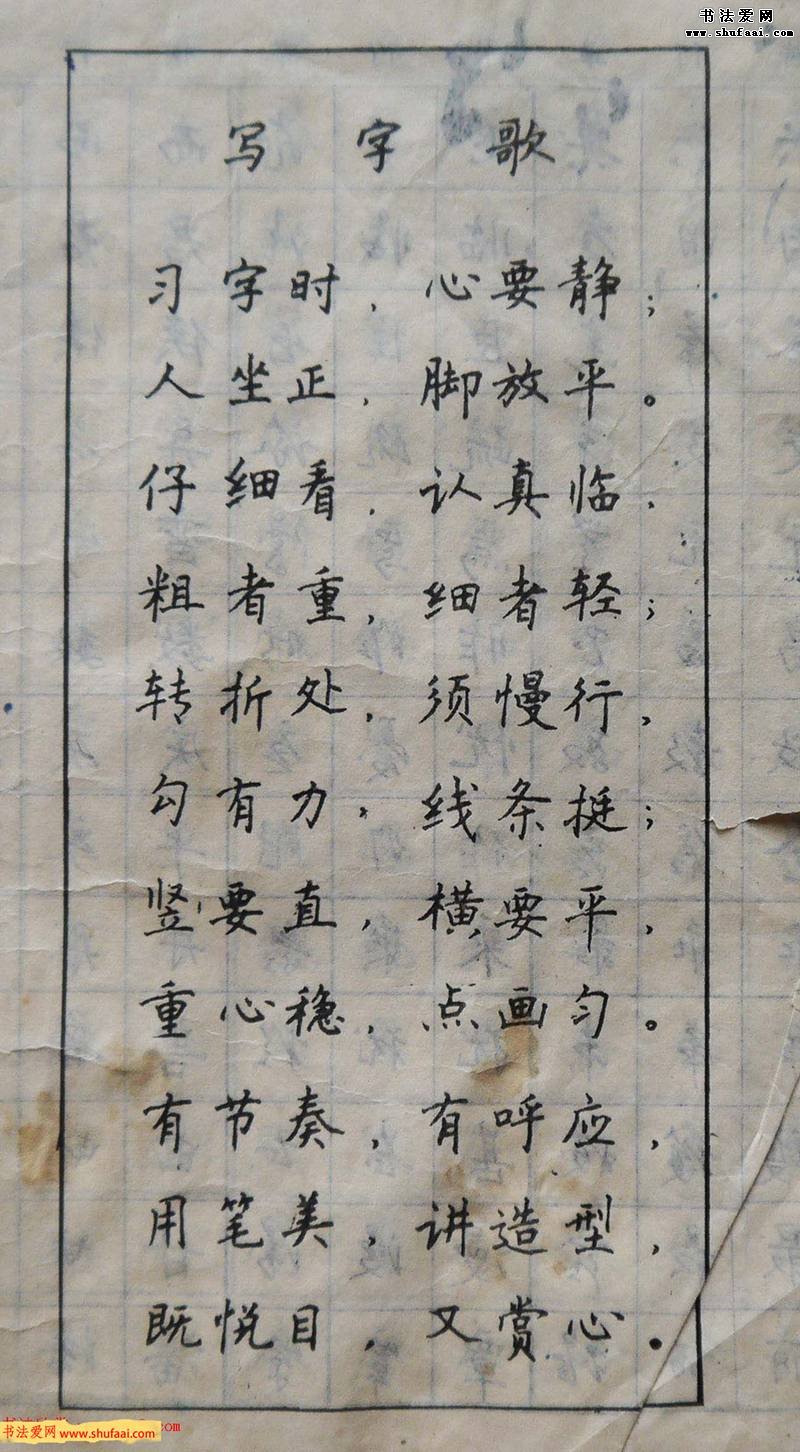 书法爱网
www.shufaai.com
写字歌
习字时，心要静；
人坐正，脚放平。
仔细看，认真临，
粗者重，细者轻；
转折处，须慢行，
勾有力，线条挺；
竖要直，横要平，
重心稳，点画匀。
有节奏，有呼应，
用笔美，讲造型，
既悦目，又赏心。
书法爱网 www.shufaai.com